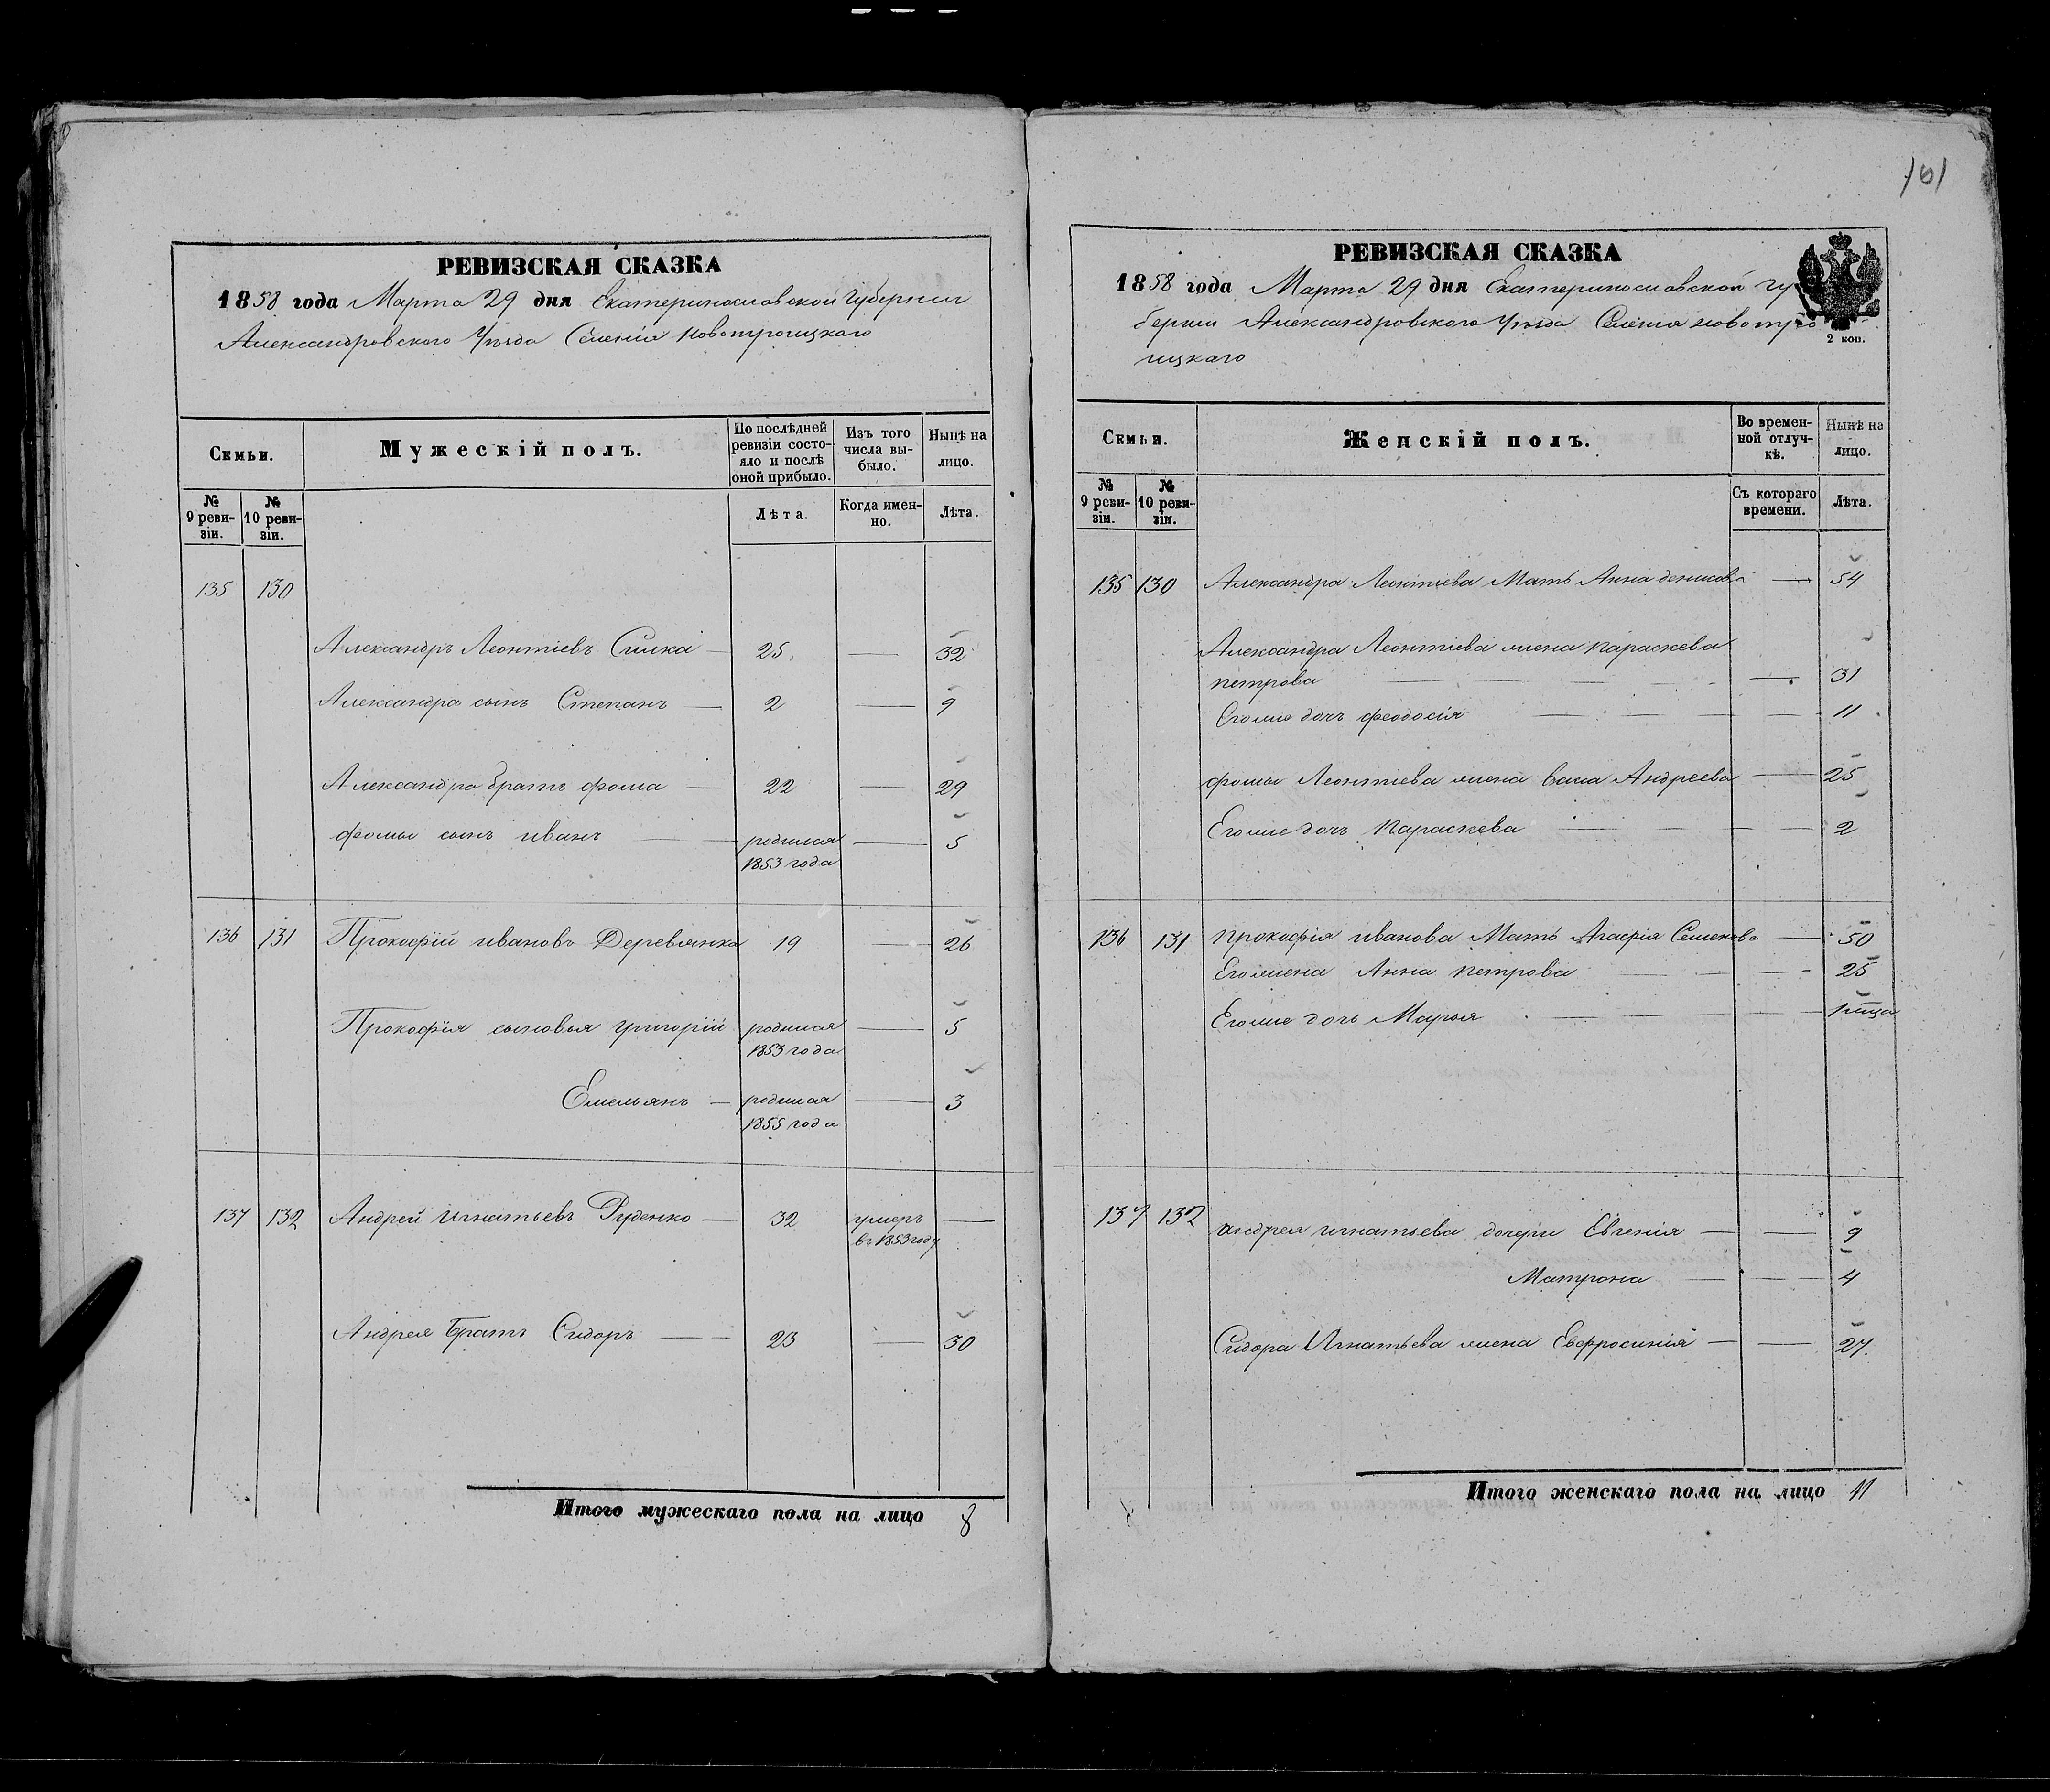 161
РЕВИЗСКАЯ СКАЗКА
1858 года Марта 29 дня Екатеринославской Губернии
Александровского Уѣзда Селенія Новотроицкаго
Семьи.
Мужескій полъ.
По послѣдней ревизіи состояло и послѣ оной прибыло.
Изъ того числа выбыло.
Нынѣ на лицо.
№ 9 ревизіи.
№ 10 ревизіи.
Лѣта.
Когда именно.
Лѣта.
135 130
Александръ Леонтіевъ 25 — 32
Александра сынъ Степанъ — 2 — 9
Александра братъ фома — 22 — 29
фомы сынъ иванъ — родился — 5
1853 года
136 131 Прокофій ивановъ Деревянка 19 — 26
Прокофія сыновья григорій родился — 5
1853 года
Емельянъ — родился — 3
1855 года
137 132 Андрей игнатьевъ Руденко — 32 умеръ —
въ 1853 году
Андрея братъ Сидоръ — 23 — 30
Итого мужескаго пола на лицо 8
РЕВИЗСКАЯ СКАЗКА
1858 года Марта 29 дня Екатеринославской гу
берніи Александровского Уѣзда Селенія новотро
ицкаго
2 коп.
Семьи.
Женскій полъ.
Во временной отлучкѣ.
Нынѣ на лицо.
№ 9 ревизіи.
№ 10 ревизіи.
Съ котораго времени.
Лѣта.
135 130 Александра Леонтіева Мать Анна денисова — 54
Александра Леонтіева жена параскева
петрова — 31
Егоже дочь феодосія — 11
фомы Леонтіева жена Андреева — 25
Егоже дочь параскева — 2
136 131 прокофія иванова Мать Семенова — 50
Его жена Анна петрова — 25
Егоже дочь Марья —
137 132 андрея игнатьева дочери Евгенія — 9
Матрона — 4
Сидора Игнатьева жена Евфросинія — 27.
Итого женскаго пола на лицо 11